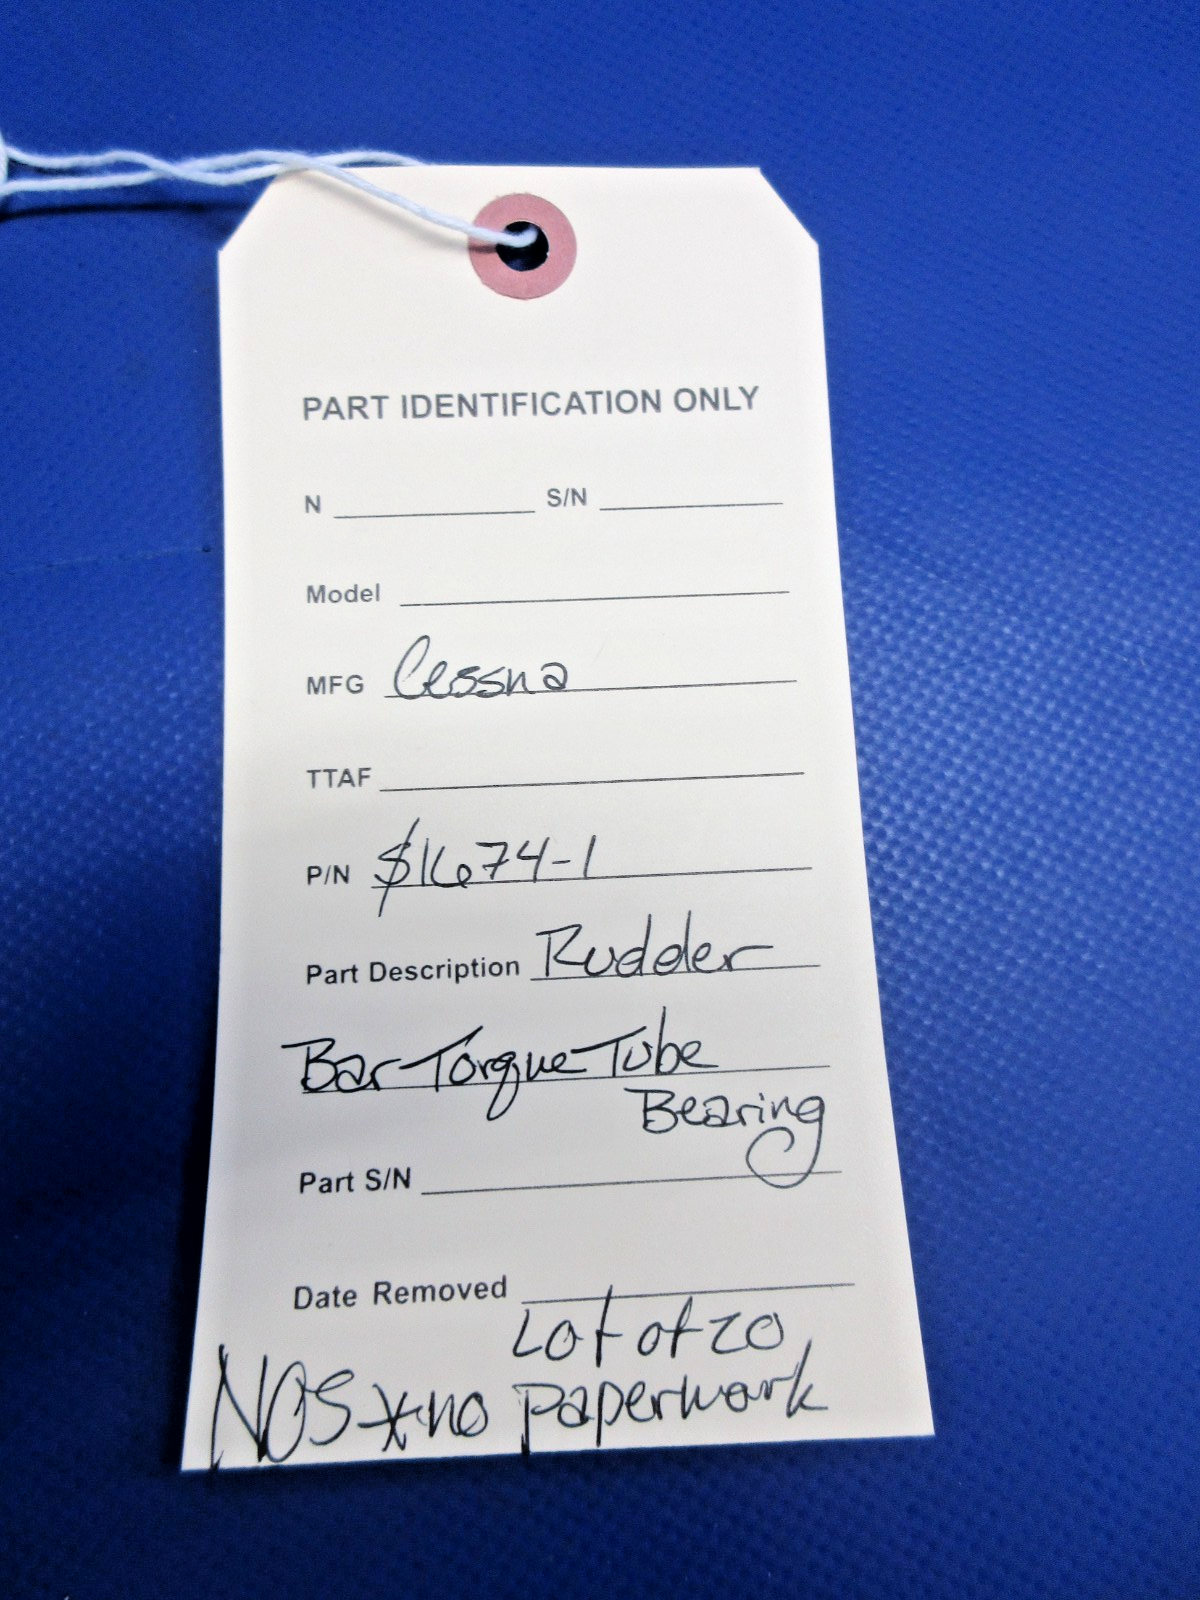 PART IDENTIFICATION ONLY
N ____________ S/N ____________
Model ____________
MFG Cessna
TTAF ____________
P/N $1674-1
Part Description Rudder
Bar Torque Tube
Bearing
Part S/N ____________
Date Removed ____________
Lot of 20
NOS * no paperwork